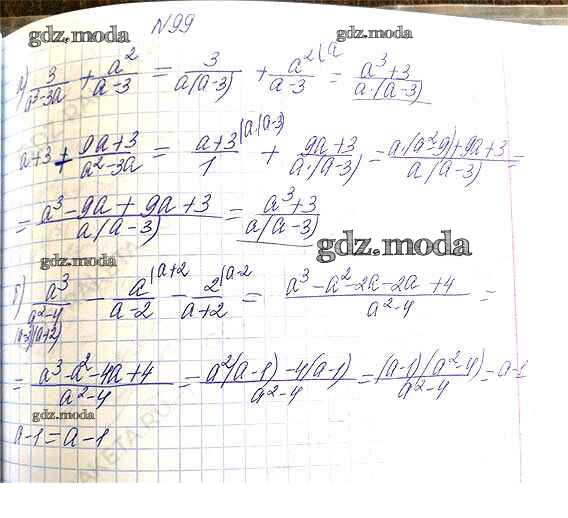 N99
gdz.moda
gdz.moda
а) 3/(a²-3a) + a²/(a-3) = 3/(a(a-3)) + a²(a/(a-3) = (a³+3)/(a·(a-3))
a+3 + (9a+3)/(a²-3a) = (a+3)/1 (a·(a-3) + (9a+3)/(a·(a-3)) = (a·(a²-9)+9a+3)/(a(a-3)) =
= (a³-9a+9a+3)/(a(a-3)) = (a³+3)/(a(a-3))
gdz.moda
gdz.moda
б) a³/(a²-4) - a(a+2/(a-2) - 2(a-2/(a+2) = (a³-a²-2a-2a+4)/(a²-4) =
(a-2)(a+2)
= (a³-a²-4a+4)/(a²-4) = (a²(a-1)-4(a-1))/(a²-4) = (a-1)(a²-4)/(a²-4) = a-1
gdz.moda
a-1=a-1